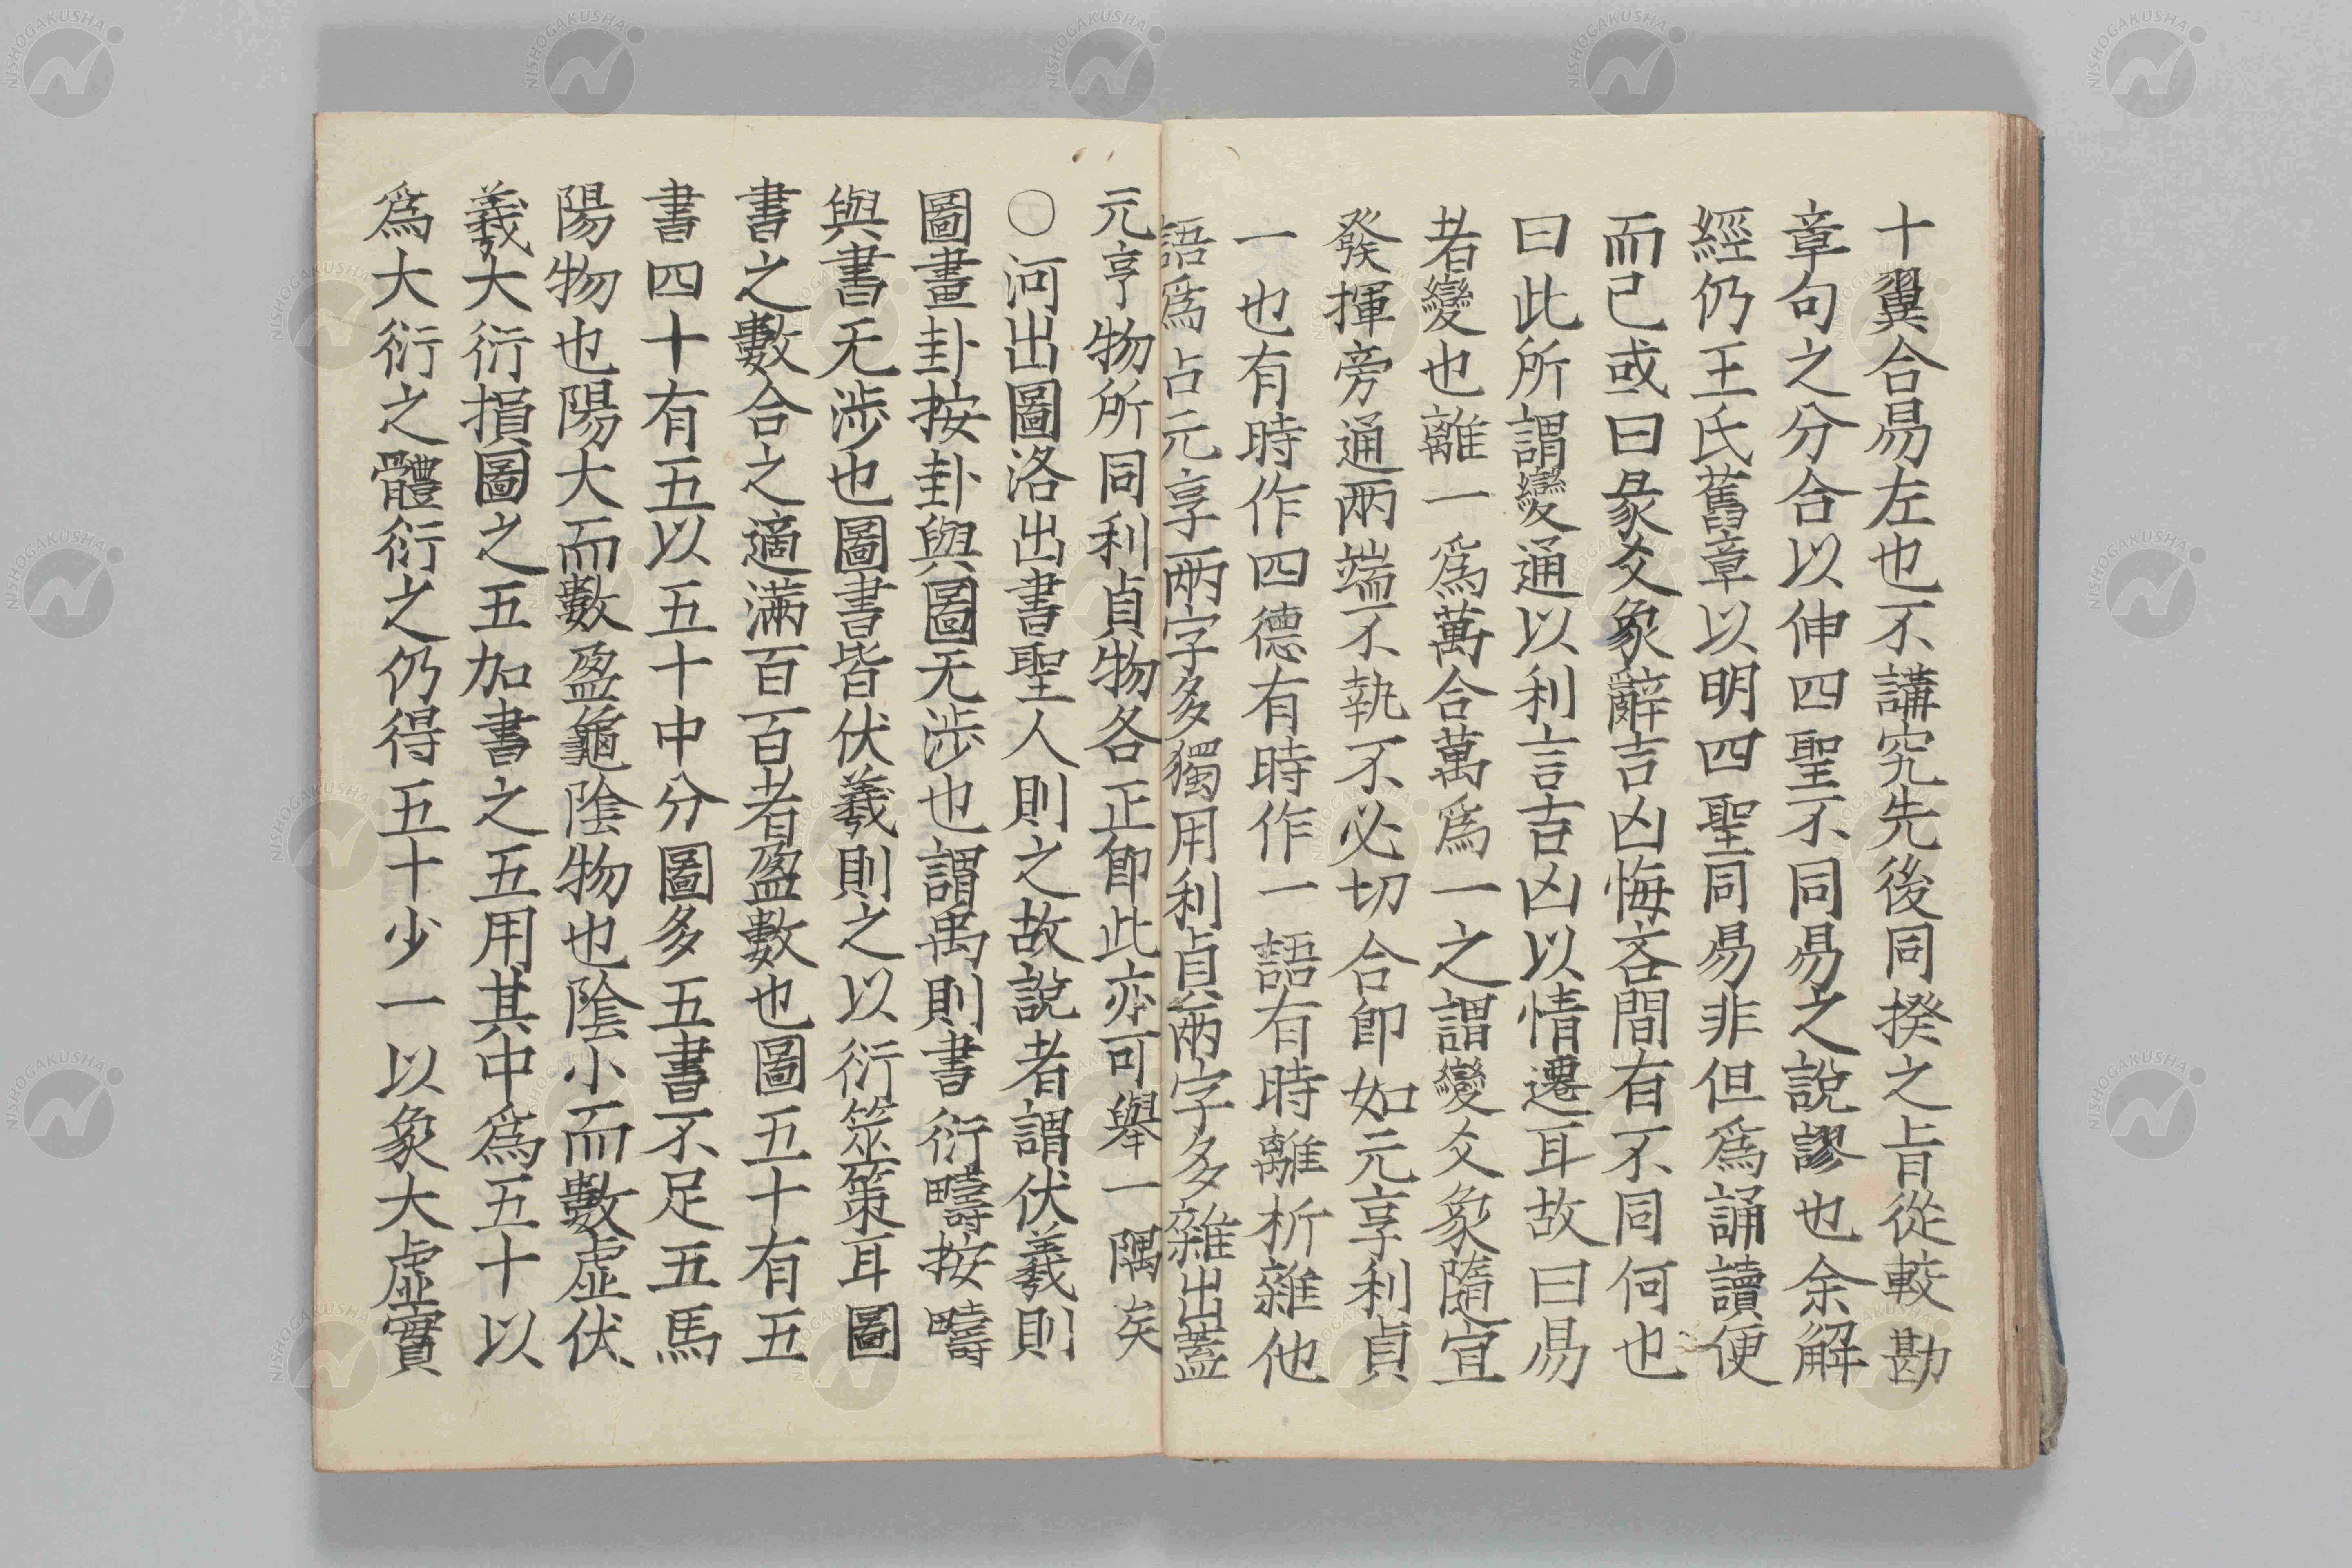 十翼合易左也不講究先後同揆之旨從較勘
章句之分合以伸四聖不同易之說謬也余解
經仍王氏舊章以明四聖同易非但爲誦讀便
而已或曰彖爻象辭吉凶悔吝間有不同何也
曰此所謂變通以利言吉凶以情遷耳故曰易
者變也離一爲萬合萬爲一之謂變爻象隨宜
發揮旁通兩端不執不必切合卽如元亨利貞
一也有時作四德有時作一語有時離析雜他
語爲占元亨兩字多獨用利貞兩字多雜出蓋
元亨物所同利貞物各正卽此亦可舉一隅矣
〇河出圖洛出書聖人則之故說者謂伏羲則
圖畫卦按卦與圖无涉也謂禹則書衍疇按疇
與書无涉也圖書皆伏羲則之以衍筮策耳圖
書之數合之適滿百百者盈數也圖五十有五
書四十有五以五十中分圖多五書不足五馬
陽物也陽大而數盈龜陰物也陰小而數虛伏
羲大衍損圖之五加書之五用其中爲五十以
爲大衍之體衍之仍得五十少一以象大虛實
NISHOGAKUSHA